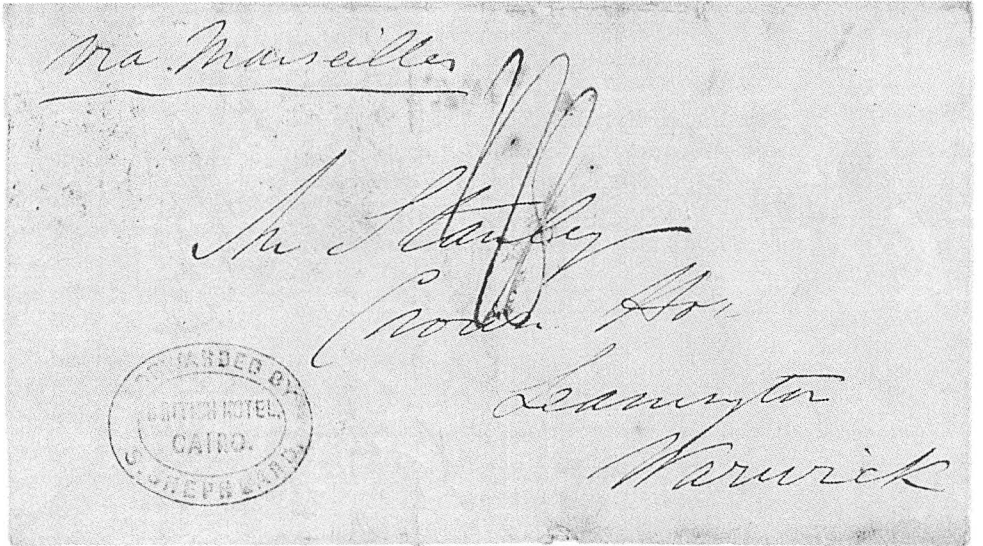 via Marseilles
Mr Stanley
Crown Ho
Leamington
Warwick
FORWARDED BY
BRITISH HOTEL
CAIRO.
S. SHEPHEARD